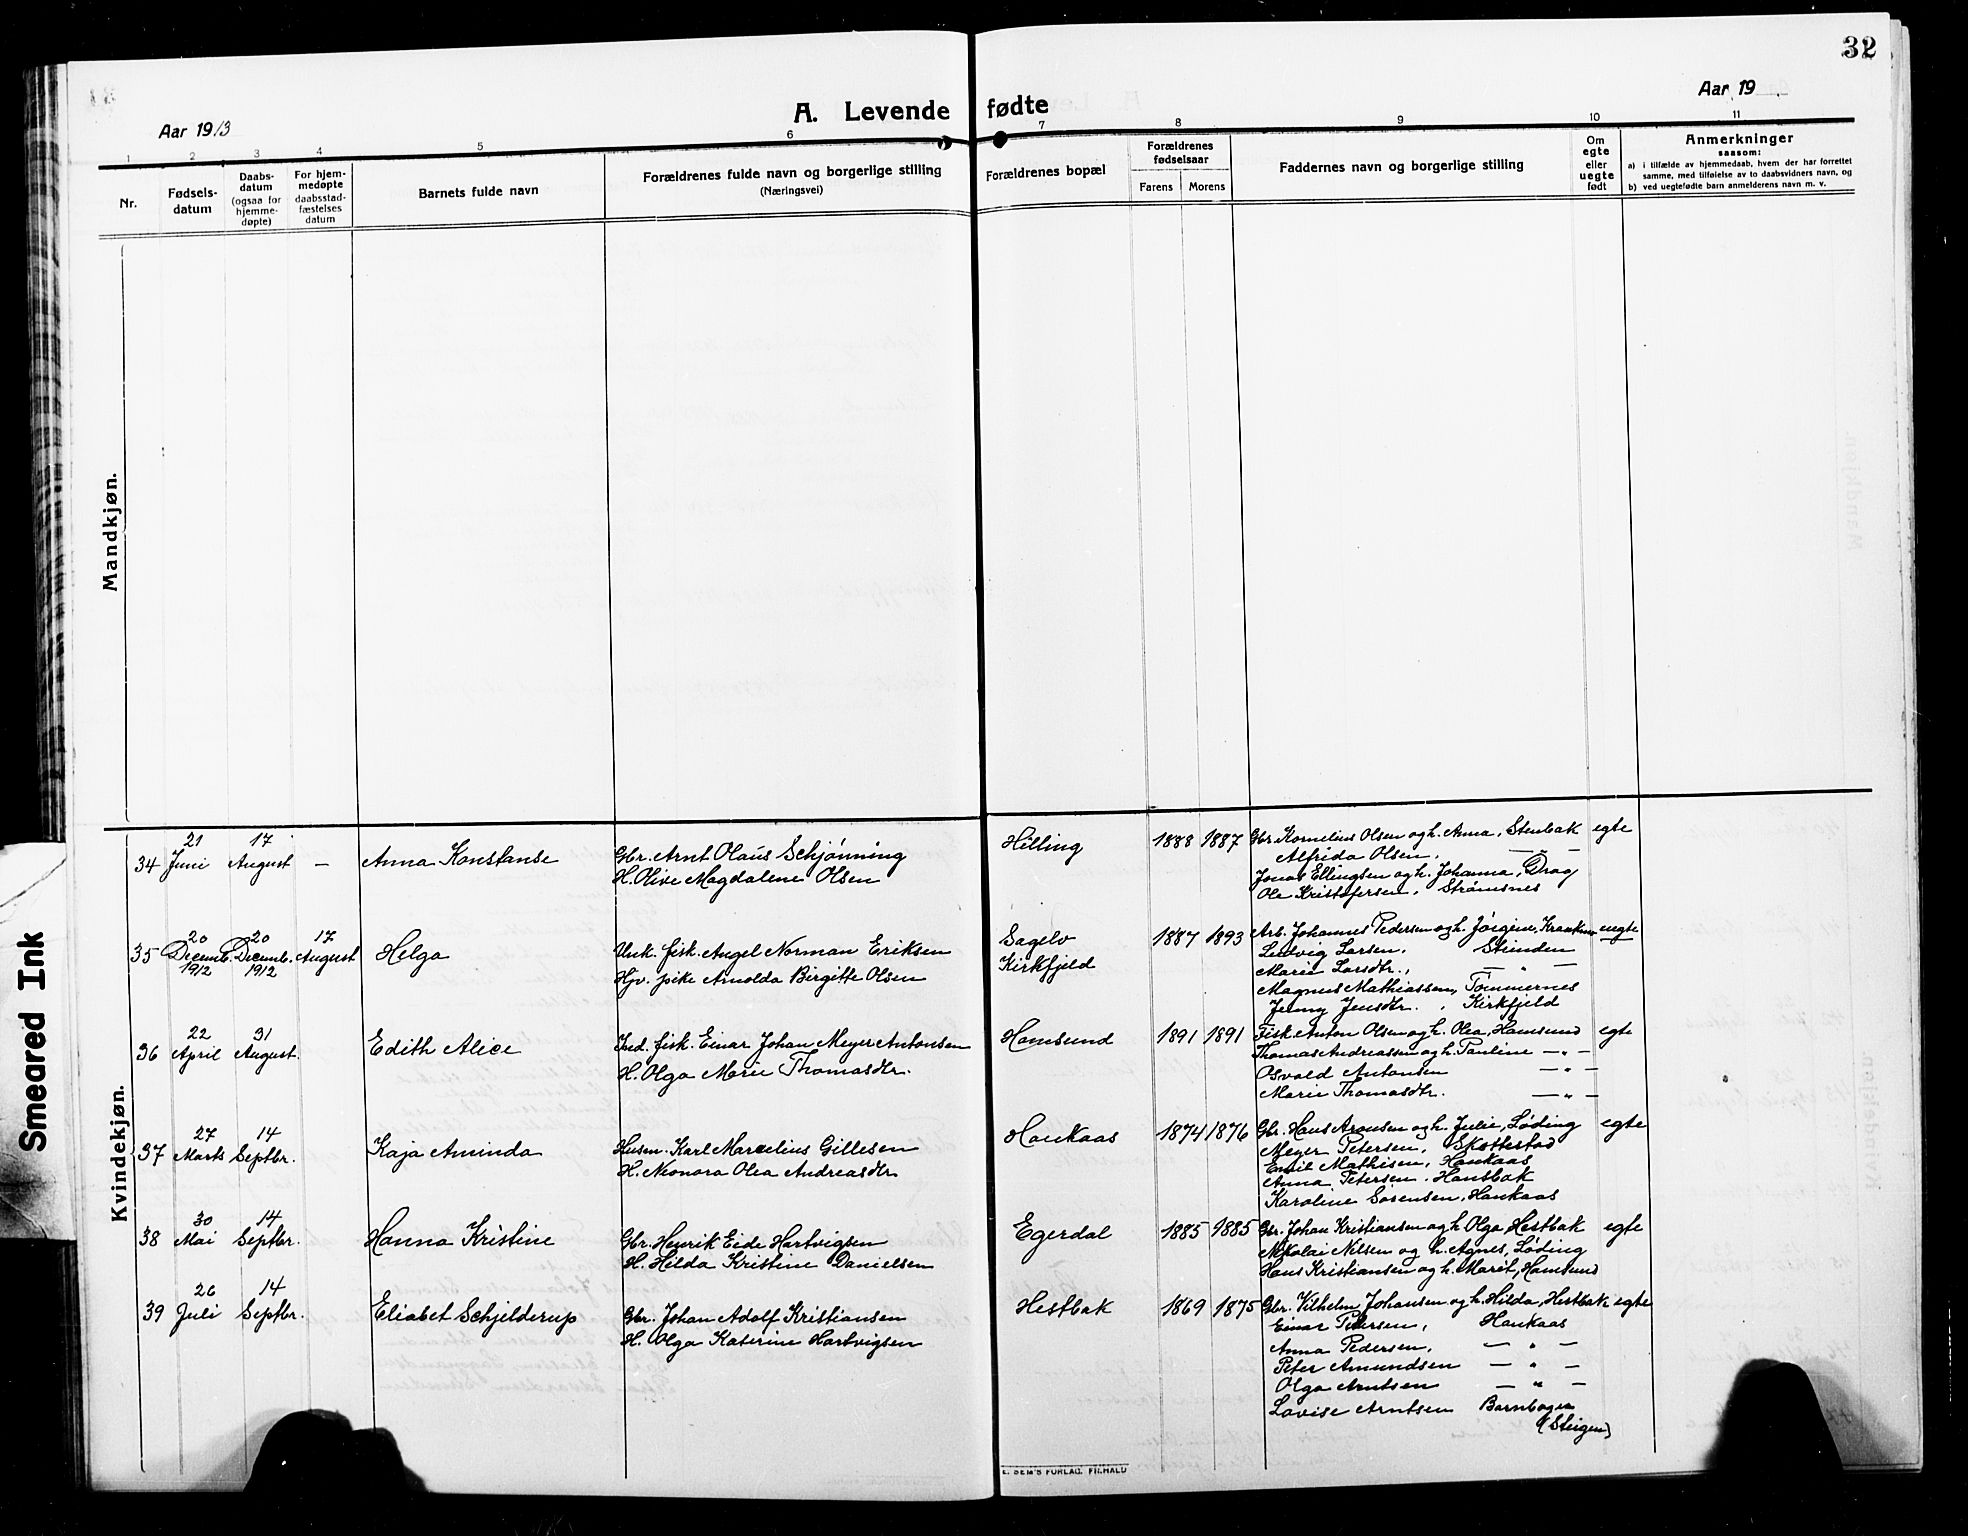 32
A. Levende fødte
Aar 1913
Aar 19
1 2 3 4 5 6 7 8 9 10 11
Nr.
Fødsels-datum
Daabs-datum (ogsaa for hjemme-døpte)
For hjem-medøpte daabsstad-fæstelses datum
Barnets fulde navn
Forældrenes fulde navn og borgerlige stilling (Næringsvei)
Forældrenes bopæl
Forældrenes fødselsaar
Farens Morens
Faddernes navn og borgerlige stilling
Om egte eller uegte født
Anmerkninger
saasom:
a) i tilfælde av hjemmedaab, hvem der har forrettet samme, med tilføielse av to daabsvidners navn, og
b) ved uegtefødte barn anmelderens navn m. v.
Mandkjøn.
Kvindekjøn.
34 21 Juni 17 August — Anna Konstanse
Gbr. Arnt Olaus Schjønning
H. Olive Magdalene Olsen
Helling 1888 1887
Gbr. Kornelius Olsen og h. Anna, Stenbak egte
Alfrida Olsen, — " —
Jonas Ellingsen og h. Johanna, Drag
Ole Kristofersen, Strømsnes
35 20 Decemb. 1912 20 Decemb. 1912 17 August Helga
Unk. fisk. Angel Norman Eriksen
Hjv. pike Arnolda Birgitte Olsen
Sagelv
Kirkfjeld
1887 1893
Arb. Johannes Pedersen og h. Jørgine, uegte
Ludvig Larsen, Stinden
Marie Larsdtr., — " —
Magnus Mathiassen, Tømmernes
Jenny Jensdtr., Kirkfjeld
36 22 April 31 August. Edith Alice
Ind. fisk. Einar Johan Meyer Antonsen
H. Olga Marie Thomasdtr.
Hamsund 1891 1891
Fisk. Anton Olsen og h. Olea, Hamsund egte
Thomas Andreassen og h. Pauline — " —
Osvald Antonsen — " —
Marie Thomasdtr. — " —
37 27 Marts 14 Septbr. Kaja Aminda
Husm. Karl Marcelius Gillesen
H. Neonora Olea Andreasdtr
Haukaas 1874 1876
Gbr. Hans Aronsen og h. Julie, Løding egte
Meyer Petersen, Skottestad
Emil Mathisen, Haukaas
Anna Petersen, Hansbak
Karoline Sørensen, Haukaas
38 30 Mai 14 Septbr. Hanna Kristine
Gbr. Henrik Eide Hartvigsen
H. Hilda Kristine Danielsen
Egerdal 1885 1885
Gbr. Johan Kristiansen og h. Olga, Hestbak egte
Nikolai Nilsen og h. Agnes, Løding
Hans Kristiansen og h. Marit, Hamsund
39 26 Juli 14 Septbr. Eliabet Schjelderup
Gbr. Johan Adolf Kristiansen
H. Olga Katerine Hartvigsen
Hestbak 1869 1875
Gbr. Vilhelm Johansen og h. Hilda, Hestbak egte
Einar Petersen, Haukaas
Anna Pedersen, — " —
Peter Amundsen — " —
Olga Arntsen — " —
Lovise Arntsen Barnbogen
(Steigen)
E. SEM'S FORLAG. FR.HALD
Smeared Ink